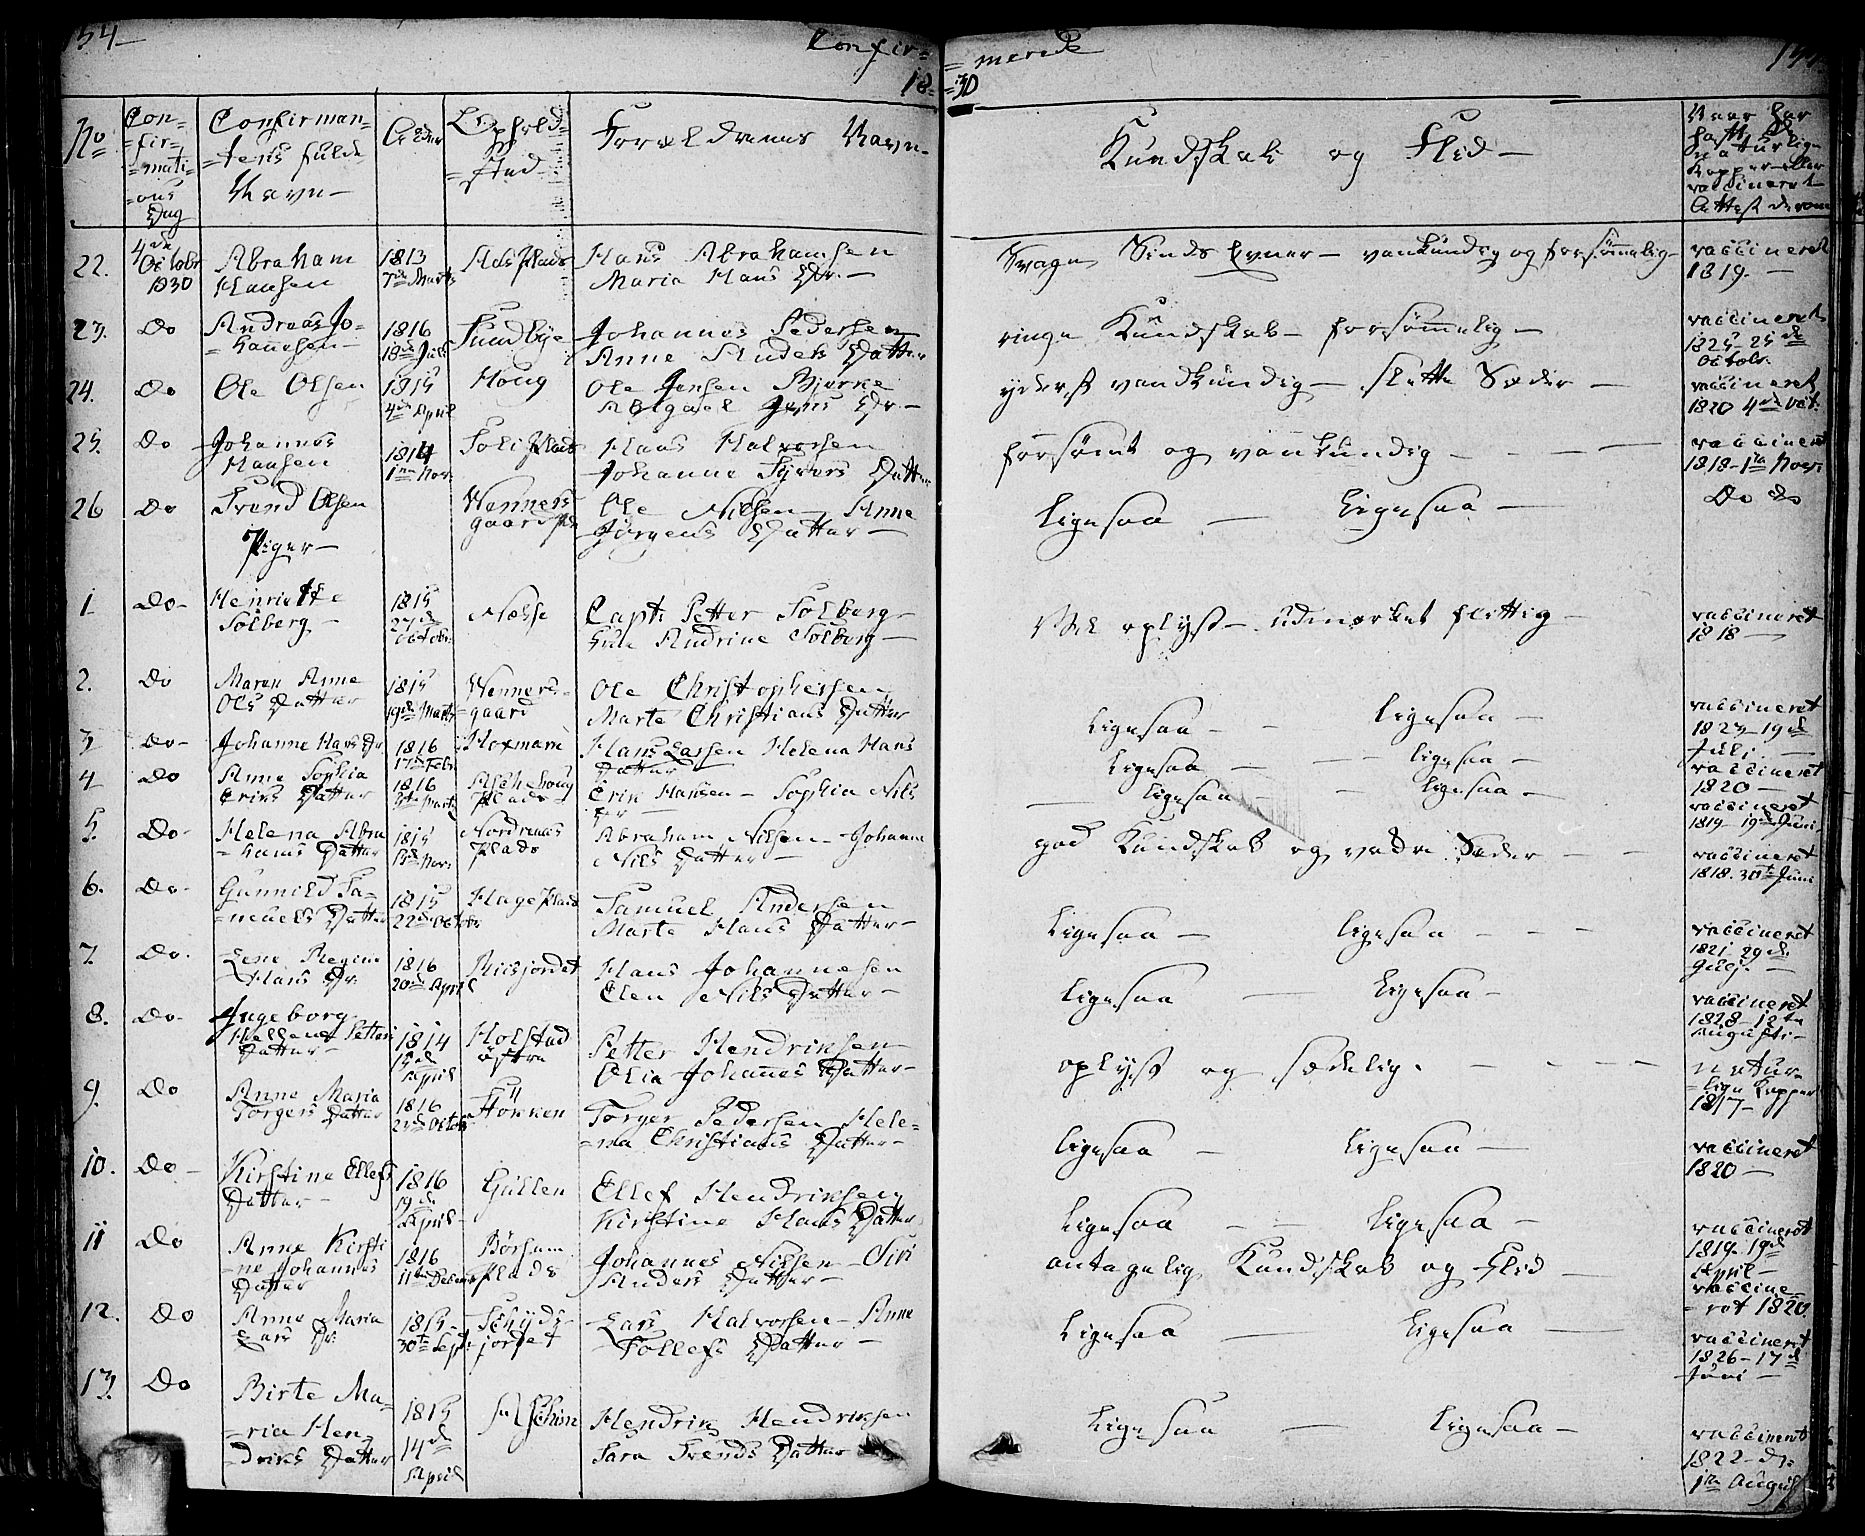 154
Confir=
=merede
18=
=30
No
Con=
=fir=
=mati=
=ons
Dag
Confirman=
=tens fulde
Navn—
Alder
Opholds
=sted—
Forældrenes Navn—
Kundskab og Flid—
vaccineret
Attest derom
22. 4de Octobr 1830 Abraham Hansen 1813 7de Marts Aas Plads Hans Abrahamsen Maria Hans Dr.— Svage Sinds Evner— vankundig og forsømmelig— vaccineret 1819.—
23. Do Andreas Jo=hannesen— 1816 18de Juli Sundbye Johannes Pedersen Anne Anders Datter ringe Kundskab— forsømmelig— vaccineret 1825–25de Octobr.
24. Do Ole Olsen 1815 4de April Houg Ole Jensen Bjerke Abigael Jens Dr.— yderst vandkundig— slette Sæder— vaccineret 1820 4de Oct.
25. Do Johannes Hansen 1814 1ste Nov. Soli Plads Hans Halvorsen Johanne Syvers Datter forsømt og vankundig— vaccineret 1818–1ste Nov.
26 Do Svend Olsen Wenners gaard Pls Ole Nilsen Anne Jørgens Datter— ligesaa— ligesaa— Do do
Piger—
1 Do– Henriette Solberg— 1815 27de Octobr. Næsse Capt: Petter Solberg Andrine Solberg— Vel oplyst— udmærket flittig— vaccineret 1818—
2. Do Maren Anne Ols Datter 1815 19de Marts Wenners=gaard Ole Christophersen Marte Christians Datter ligesaa— ligesaa— vaccineret 1823–19de Juli—
3 Do– Johanne Hans Dr 1816 17de Febr. Moxmarn Hans Larsen Helena Hans Datter ligesaa— ligesaa— vaccineret 1820—
4 Do Anne Sophia Eriks Datter 1816 Marts Aschehoug Plads Erik Hansen— Sophia Nils Dr— ligesaa— ligesaa— vaccineret 1819–19de Juni
5. Do– Helena Abra=hams Datter 1815 13de Nov. Nordraaes Plads Abraham Nilsen— Johanne Nils Datter— god Kundskab og Sæder— vaccineret 1818. 30te Juni
6. Do– Gunnild Sa=muels Datter 1815 22de Octobr Hage Plads Samuel Andersen Marte Hans Datter— ligesaa— ligesaa— vaccineret 1821. 29de
7 Do. Lene Regine Hans Dr: 1816 20de April Riisjordet Hans Johannesen Elen Nils Datter— ligesaa— ligesaa— vaccineret 1828–12te Augusti—
8. Do– Ingeborg Petters Datter— 1814 15de April Holstad østre Petter Hendriksen Olia Johannes Datter— oplyst og sædelig.— natur=lige Kopper 1817—
9. Do Anne Maria Torgers Datter 1816 Octobr Støkken Torger Pedersen Hele=na Christians Datter— ligesaa— ligesaa— vaccineret 1820—
10. Do— Kirstine Ellefs Datter— 1816 19de April— Gullen Ellef Hendriksen Kirstine Hans Datter ligesaa— ligesaa— vaccineret 1819–19de April—
11 Do Anne Kirsti=ne Johannes Datter 1816 11te December Børsum Plads Johannes Nilsen— Siri Anders Datter— antagelig Kundskab og Flid— vaccine=ret 1820.
12. Do Anne Maria Lars Dr: 1815– 30te Sept: Schyds=jordet Lars Halvorsen— Anne Tollefs Datter— ligesaa— ligesaa— vaccineret 1826–17de Juni—
13. Do Birte Ma=ria Hen=driks Datter 1815 14de April Hendrik Hendriksen Sara Svends Datter ligesaa— ligesaa— vaccineret 1822– 1ste August